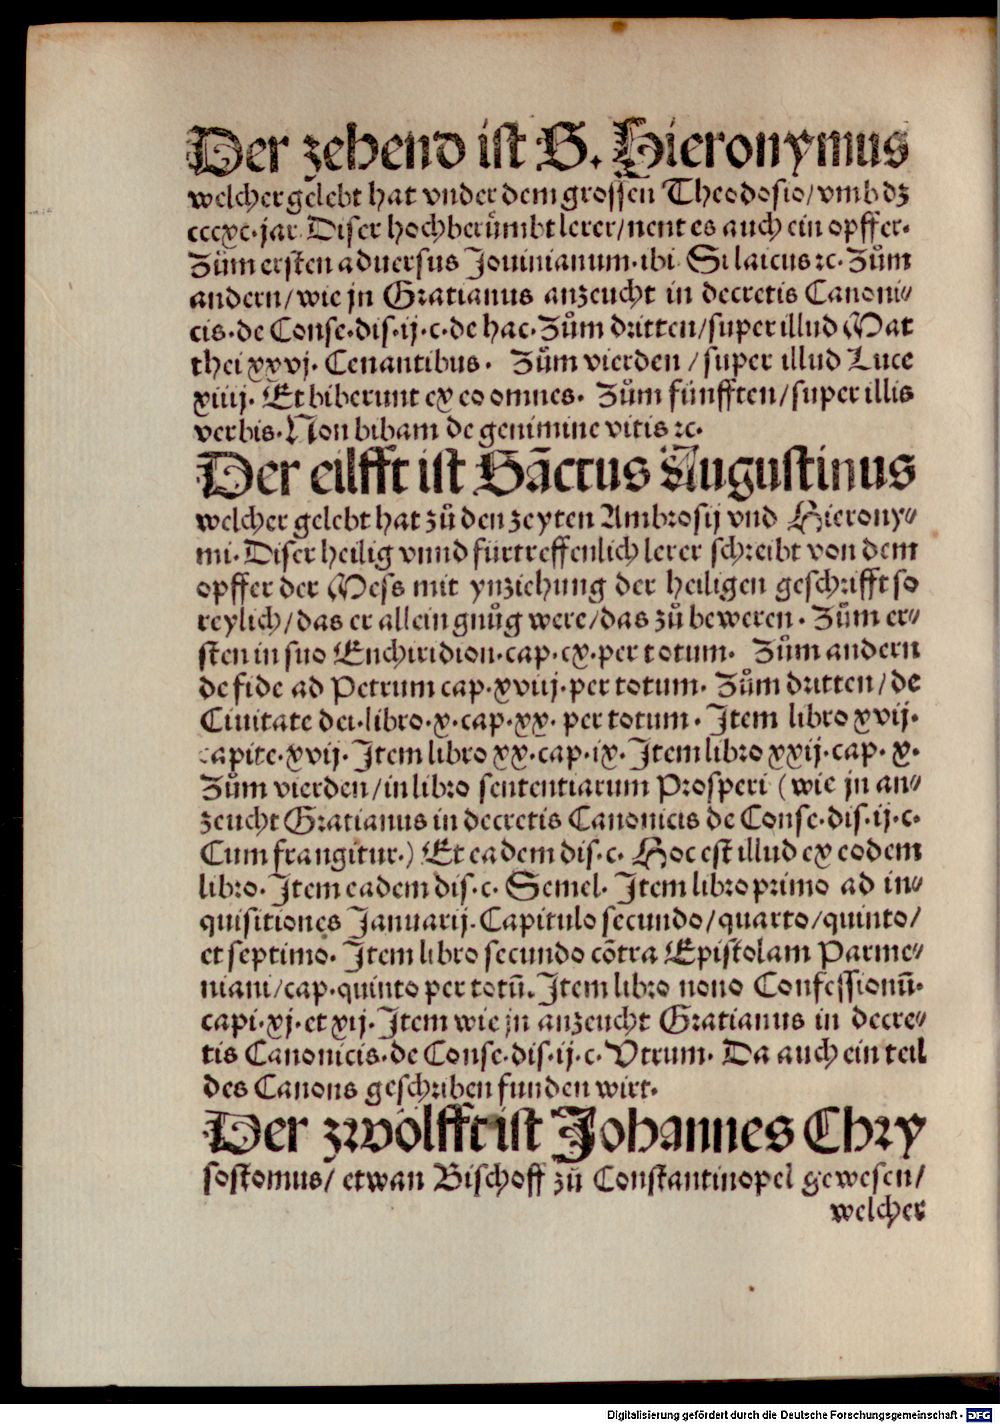 Der zehend ist S. Hieronymus
welcher gelebt hat vnder dem grossen Theodosio/vmb dz
cccxc·jar. Diser hochberümbt lerer/nent es auch ein opffer·
Zům ersten aduersus Jouinianum·ibi Si laicus ⁊c. Zům
andern/wie jn Gratianus anzeucht in decretis Canoni⸗
cis·de Conse·dis·ij·c·de hac· Zům dritten/super illud Mat
thei xxvj· Cenantibus· Zům vierden /super illud Luce
xiiij· Et biberunt ex eo omnes· Zům fünfften/super illis
verbis·Non bibam de genimine vitis ⁊c.
Der eilfft ist Sãctus Augustinus
welcher gelebt hat zů den zeyten Ambrosij vnd Hierony⸗
mi· Diser heilig vnnd fürtreffenlich lerer schreibt von dem
opffer der Mess mit ynziehung der heiligen geschrifft so
reylich/das er allein gnůg were/das zů beweren· Zům er⸗
sten in suo Enchiridion·cap·cx·per totum· Zům andern
de fide ad Petrum cap·xviij·per totum· Zům dritten/de
Ciuitate dei·libro·x·cap·xx· per totum· Item libro xvij·
capite·xvij· Item libro xx·cap·ix· Item libro xxij·cap· x·
Zům vierden/in libro sententiarum Prosperi (wie jn an⸗
zeucht Gratianus in decretis Canonicis de Conse·dis·ij·c·
Cum frangitur·) Et eadem dis·c· Hoc est illud ex eodem
libro· Item eadem dis·c· Semel· Item libro primo ad in⸗
quisitiones Januarij· Capitulo secundo/quarto/quinto/
et septimo· Item libro secundo cõtra Epistolam Parme⸗
niani/cap·quinto per totũ· Item libro nono Confessionũ·
capi·xj·et xij· Item wie jn anzeucht Gratianus in decre⸗
tis Canonicis·de Conse·dis·ij·c· Vtrum· Da auch ein teil
des Canons geschriben funden wirt·
Der zwölfft ist Johannes Chry
sostomus/ etwan Bischoff zů Constantinopel gewesen/
welcher
Digitalisierung gefördert durch die Deutsche Forschungsgemeinschaft - DFG